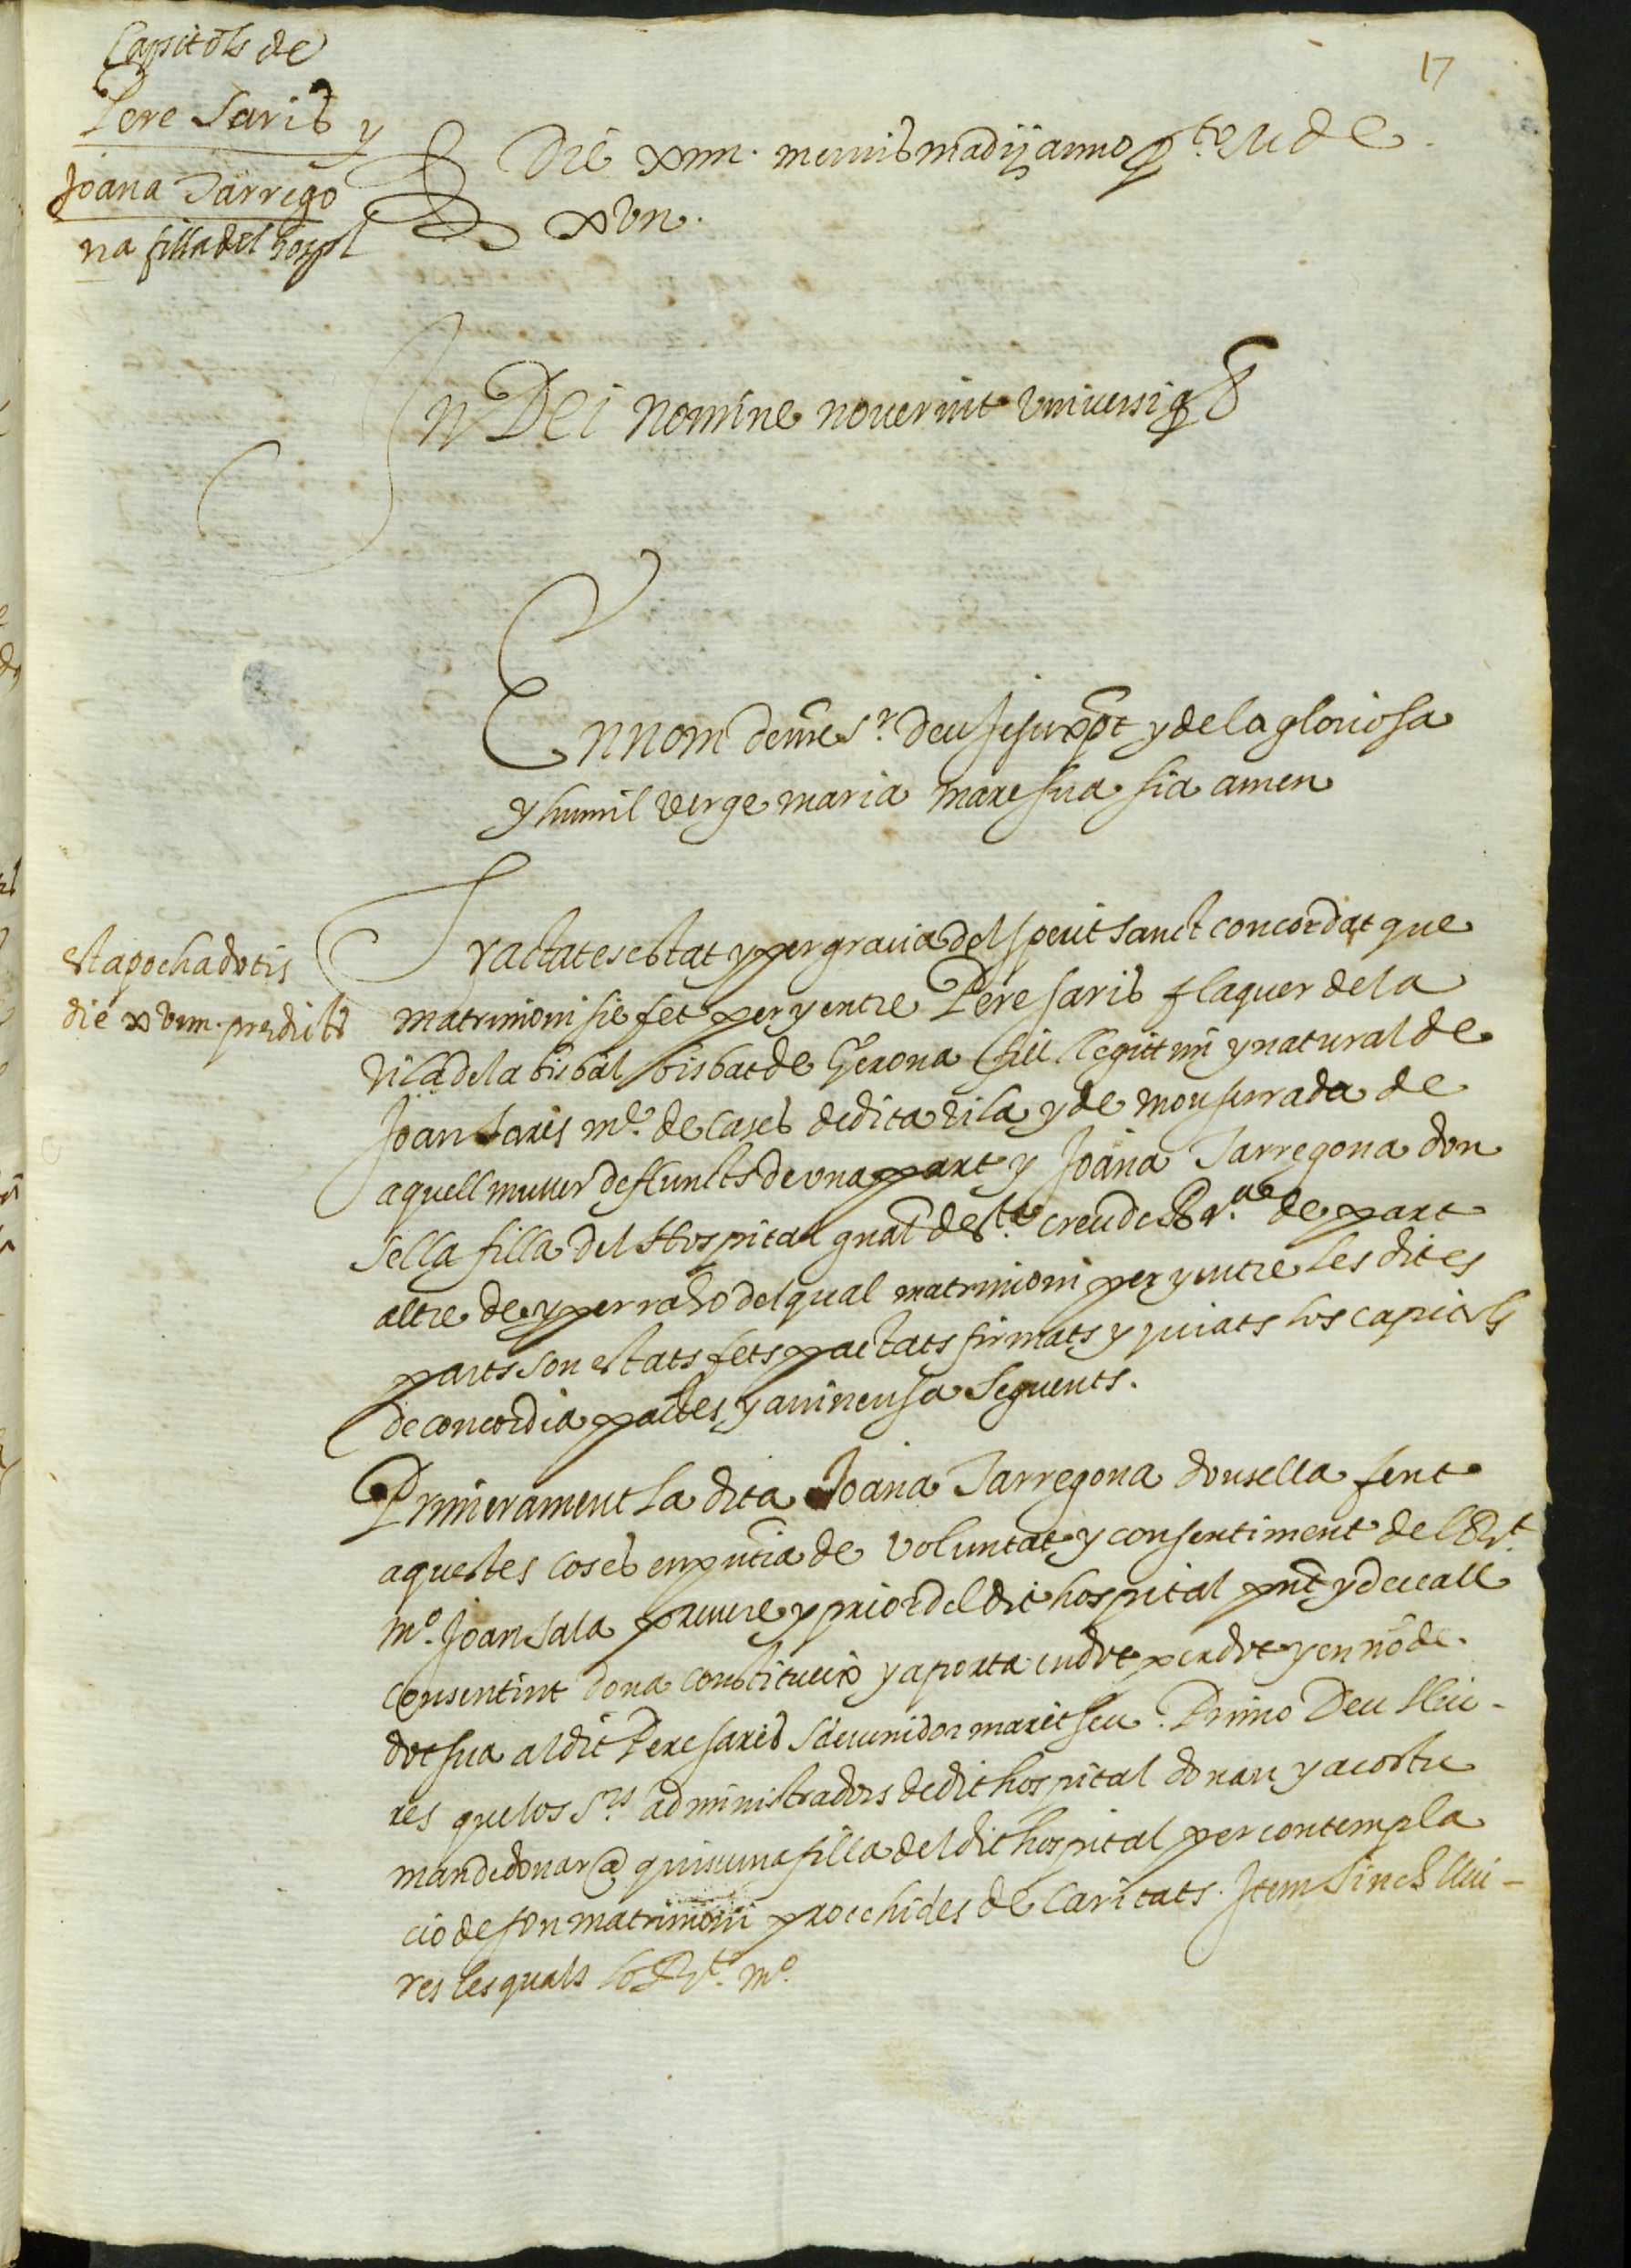 17
Capitols de
Pere Saris y
Joana Tarrego
na filla del hospl
Die xiiii. mensis madij anno p.to M de
xvii.
In Dei Nomine noverint universi q
En nom de nre Sr. deu Jesu xpt y de la gloriosa
y humil verge maria mare sua sia amen
est apocha dotis
die xviiii. predicti
Tractat es estat y per gracia del sperit sanct concordat que
matrimoni sie fet per y entre Pere saris flaquer de la
vila de la bisbal bisbat de Gerona fill llegittim y natural de
Joan saris mo. de cases de dita vila y de monserrada de
aquell muller defuncts de una part y Joana Tarregona don
sella filla del Hospital gnal de Sta. creu de Bar.na de part
altre de y per raho del qual matrimoni per y entre les dites
parts son estats fets pactats firmats y jurats los capitols
de concordia pactes y avinensa seguents.
Primerament la dita Joana Tarregona donsella fent
aquestes coses en pntia de voluntat y consentiment del Rt.
mo. Joan sala prevere y prior del dit hospital pnt y de ceall
consentint dona constitueix y aporta en dot per dot y en no de
dot sua al dit Pere saris sdevenidor marit seu. Primo Deu lliu-
res que los Srs. administradors de dit hospital donan y acostu
man de donar a quiscuna filla del dit hospital per contempla
cio de son matrimoni procehides de caritats. Item Sinch lliu-
res les quals lo Rt. mo.